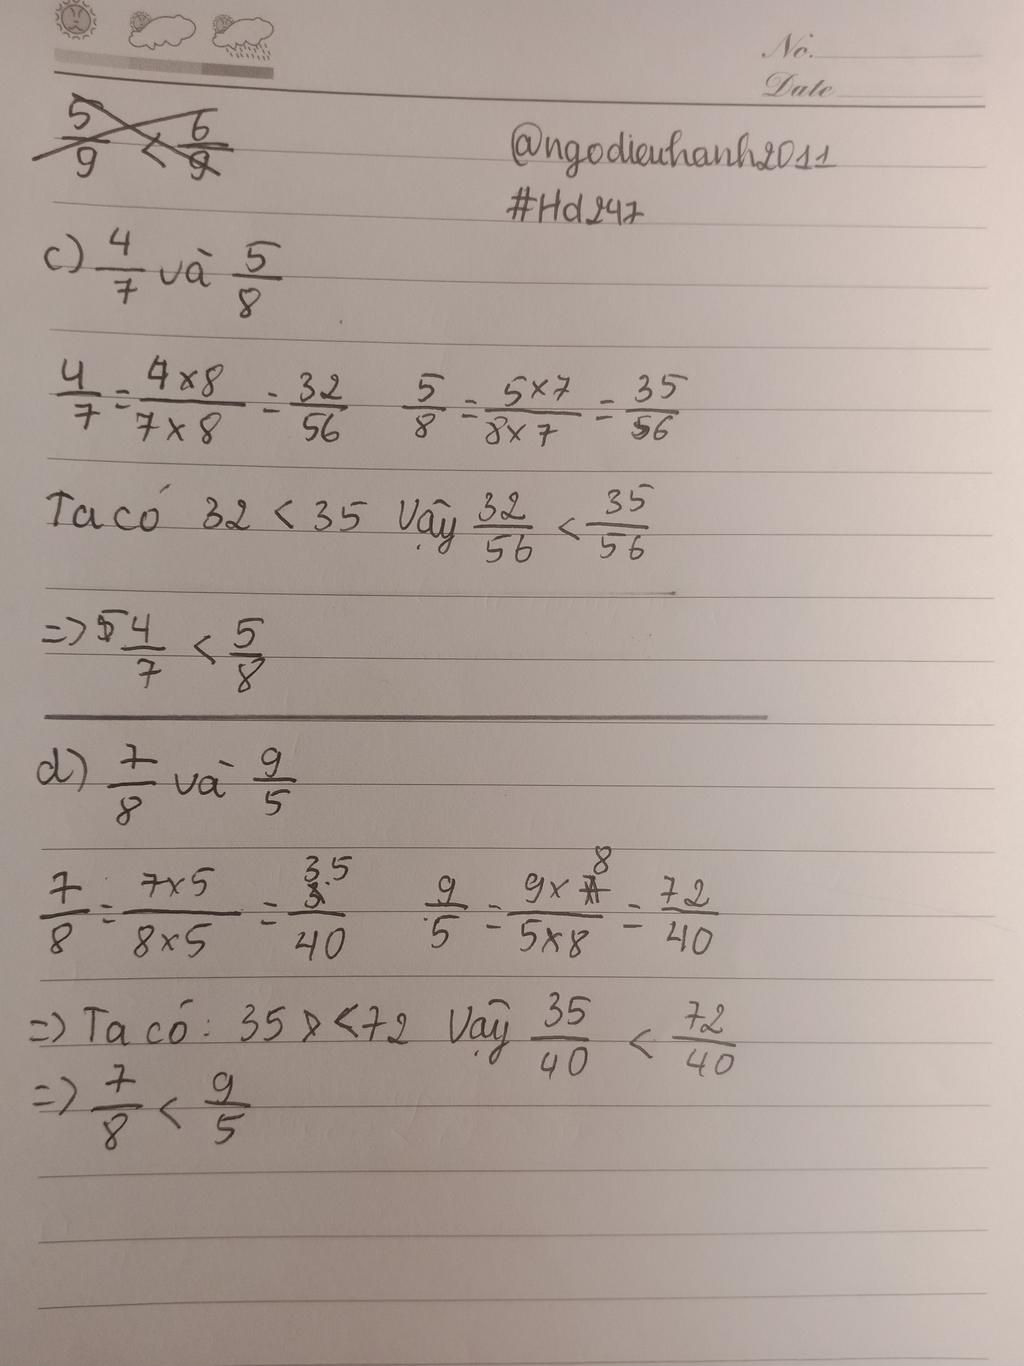 No.
Date
5/9 < 6/9
@ngodieuhanh2011
#Hd247
c) 4/7 và 5/8
4/7 = 4x8/7x8 = 32/56 5/8 = 5x7/8x7 = 35/56
Ta có 32 < 35 Vậy 32/56 < 35/56
=> 4/7 < 5/8
d) 7/8 và 9/5
7/8 = 7x5/8x5 = 35/40 9/5 = 9x8/5x8 = 72/40
=> Ta có: 35 < 72 Vậy 35/40 < 72/40
=> 7/8 < 9/5